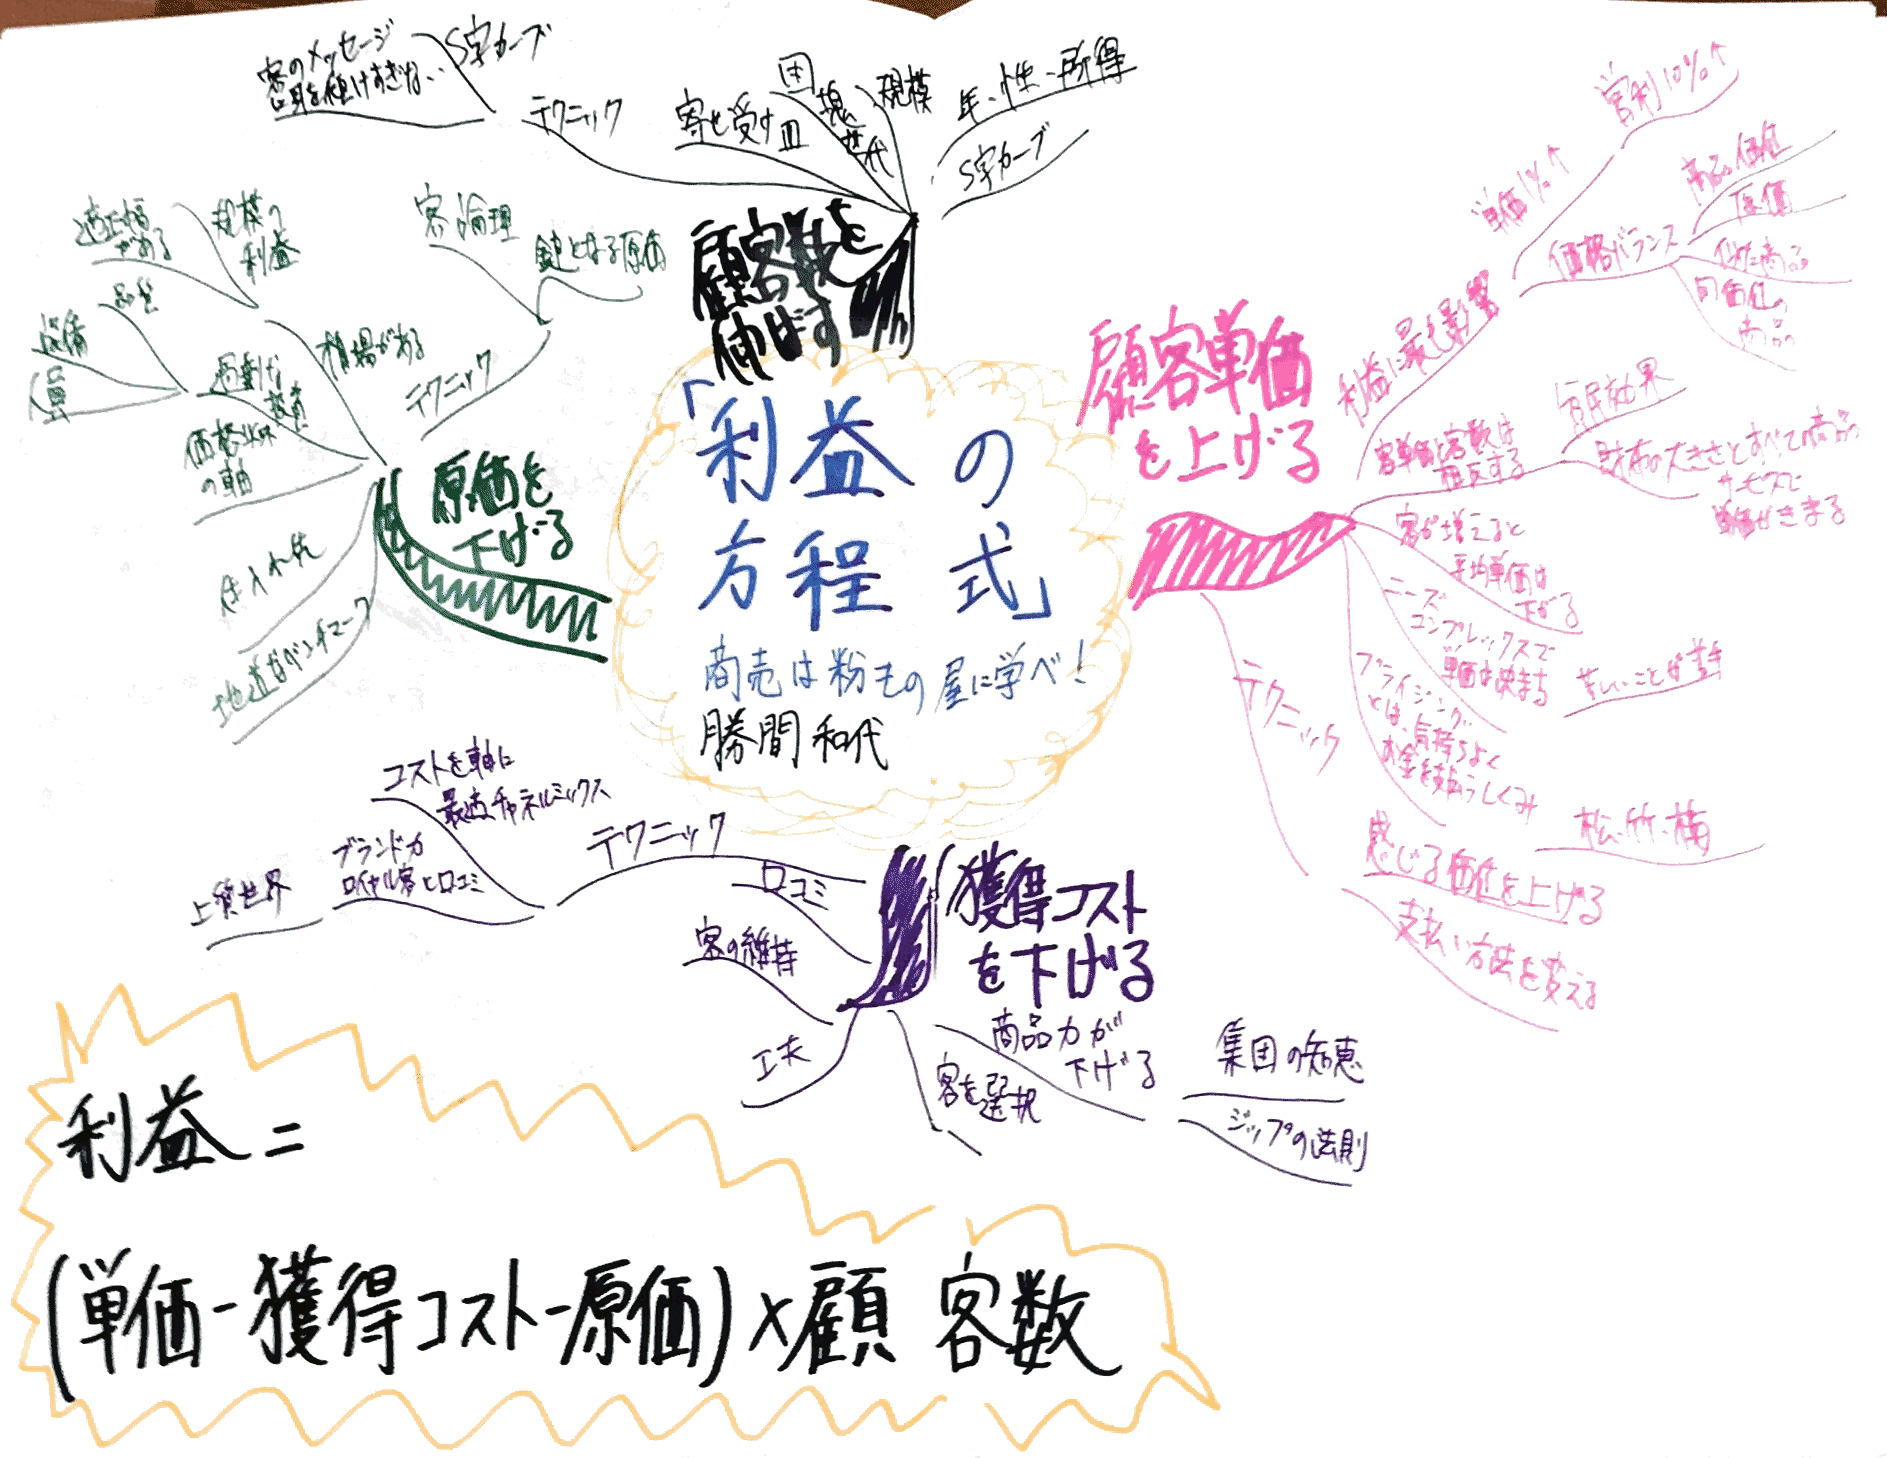 「利益の
方程式」
商売は粉もの屋に学べ！
勝間和代
顧客単価
を上げる
利益に最も影響
単価1%↑
営利10%↑
価格バランス
商品の価値
原価
似た商品
同価値の
商品
客単価と客数は
相反する
市民効果
財布の大きさとすべての商品
サービスで
単価がきまる
客が増えると
平均単価は
下がる
ニーズ
コンプレックスで
単価は決まる
苦しいことは苦手
プライシング
とは、気持ちよく
お金を支払うしくみ
松・竹・梅
テクニック
感じる価値を上げる
支払い方法を変える
獲得コスト
を下げる
商品力が
下げる
集団の知恵
ジップの法則
客を選択
工夫
客の維持
口コミ
テクニック
コストを軸に
最適チャネルミックス
ブランド力
ロイヤル客と口コミ
上質世界
原価を
下げる
テクニック
鍵となる原価
客論理
相場がある
規模の
利益
適正幅
がある
過剰な
投資
設備
人員
価格以外
の軸
仕入れ先
地道なベンチマーク
顧客数を
伸ばす
テクニック
S字カーブ
客のメッセージ
に耳を傾けすぎない
寄せ受す皿
団
塊
世代
規模
年・性・所得
S字カーブ
利益＝
(単価－獲得コスト－原価)×顧客数